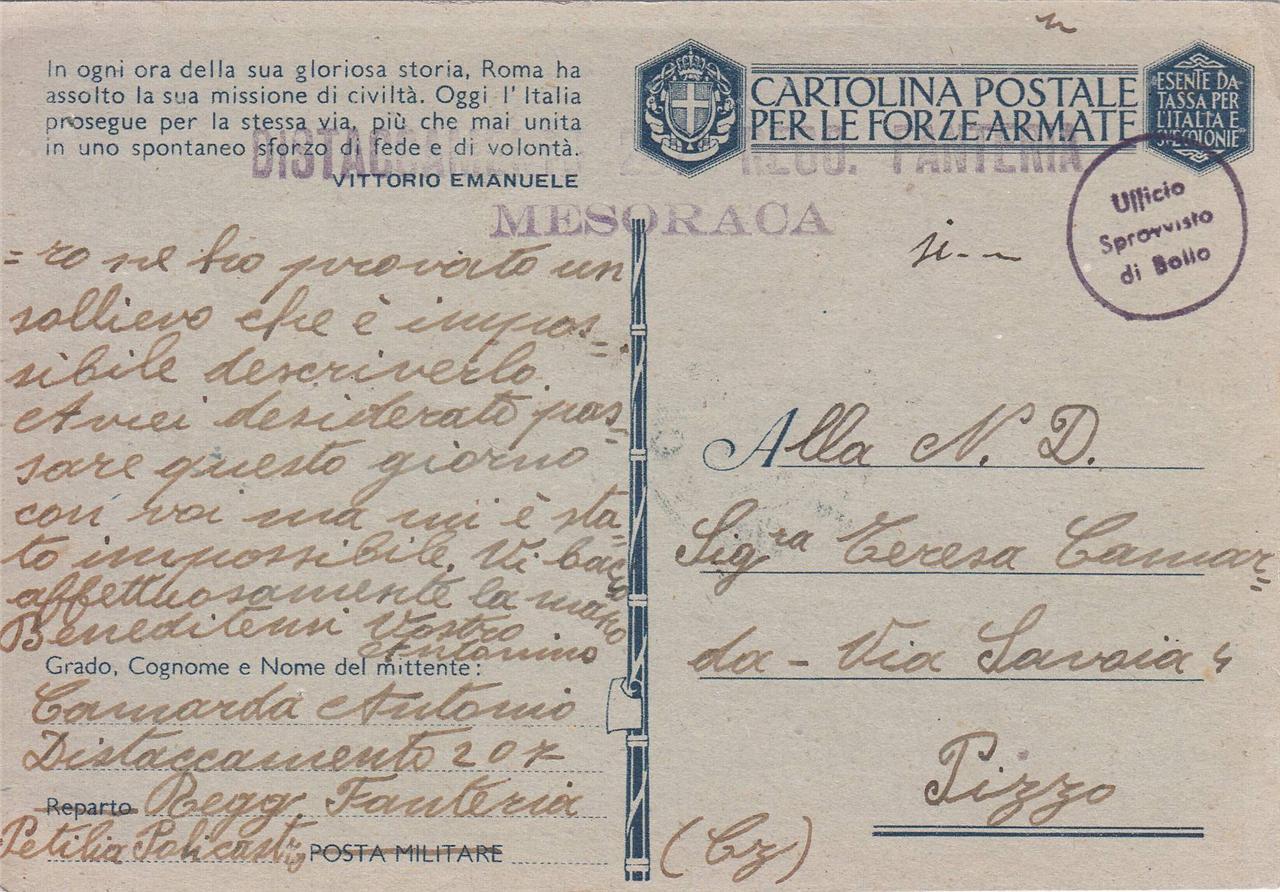 In ogni ora della sua gloriosa storia, Roma ha
assolto la sua missione di civiltà. Oggi l'Italia
prosegue per la stessa via, più che mai unita
in uno spontaneo sforzo di fede e di volontà.
VITTORIO EMANUELE
CARTOLINA POSTALE
PER LE FORZE ARMATE
ESENTE DA
TASSA PER
L'ITALIA E
SUE COLONIE
REGG. FANTERIA
MESORACA
Ufficio
Sprovvisto
di Bollo
=ro ne ho provato un
sollievo che è impos=
sibile descriverlo.
Avrei desiderato pas=
sare questo giorno
con voi ma mi è sta=
to impossibile. Vi bacio
affettuosamente la mano
Beneditemi Vostro
Antonino
Grado, Cognome e Nome del mittente:
Camarda Antonio
Distaccamento 207
Reparto Regg. Fanteria
Petilia Policastro POSTA MILITARE
Alla N. D.
Sigra Teresa Camar=
da - Via Savoia 4
Pizzo
(Cz)